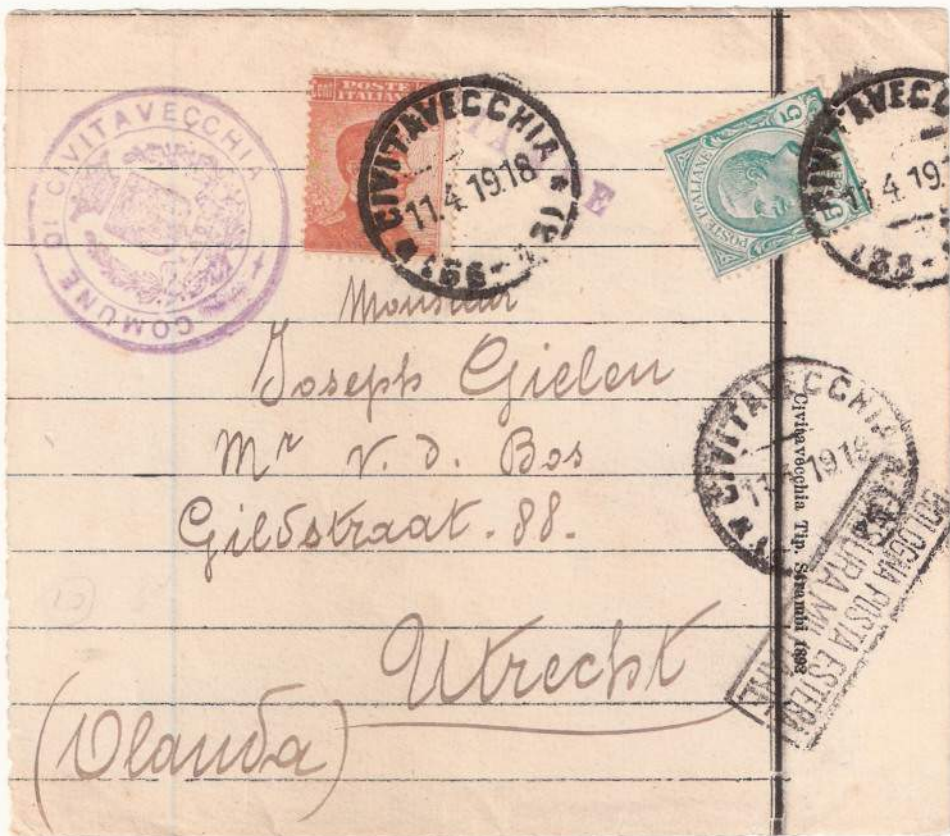 COMUNE DI CIVITAVECCHIA
Cent POSTE
ITALIANE
CIVITAVECCHIA
11.4 1918
E
POSTE ITALIANE
5
5
11.4 19
Monsieur
Joseph Gielen
Mr v. d. Bos
Gildstraat. 88.
Utrecht
(Olanda)
CIVITAVECCHIA
1918
Civitavecchia Tip. Strambi 1893
BOLOGNA POSTA ESTERA
CENSURA MILITARE